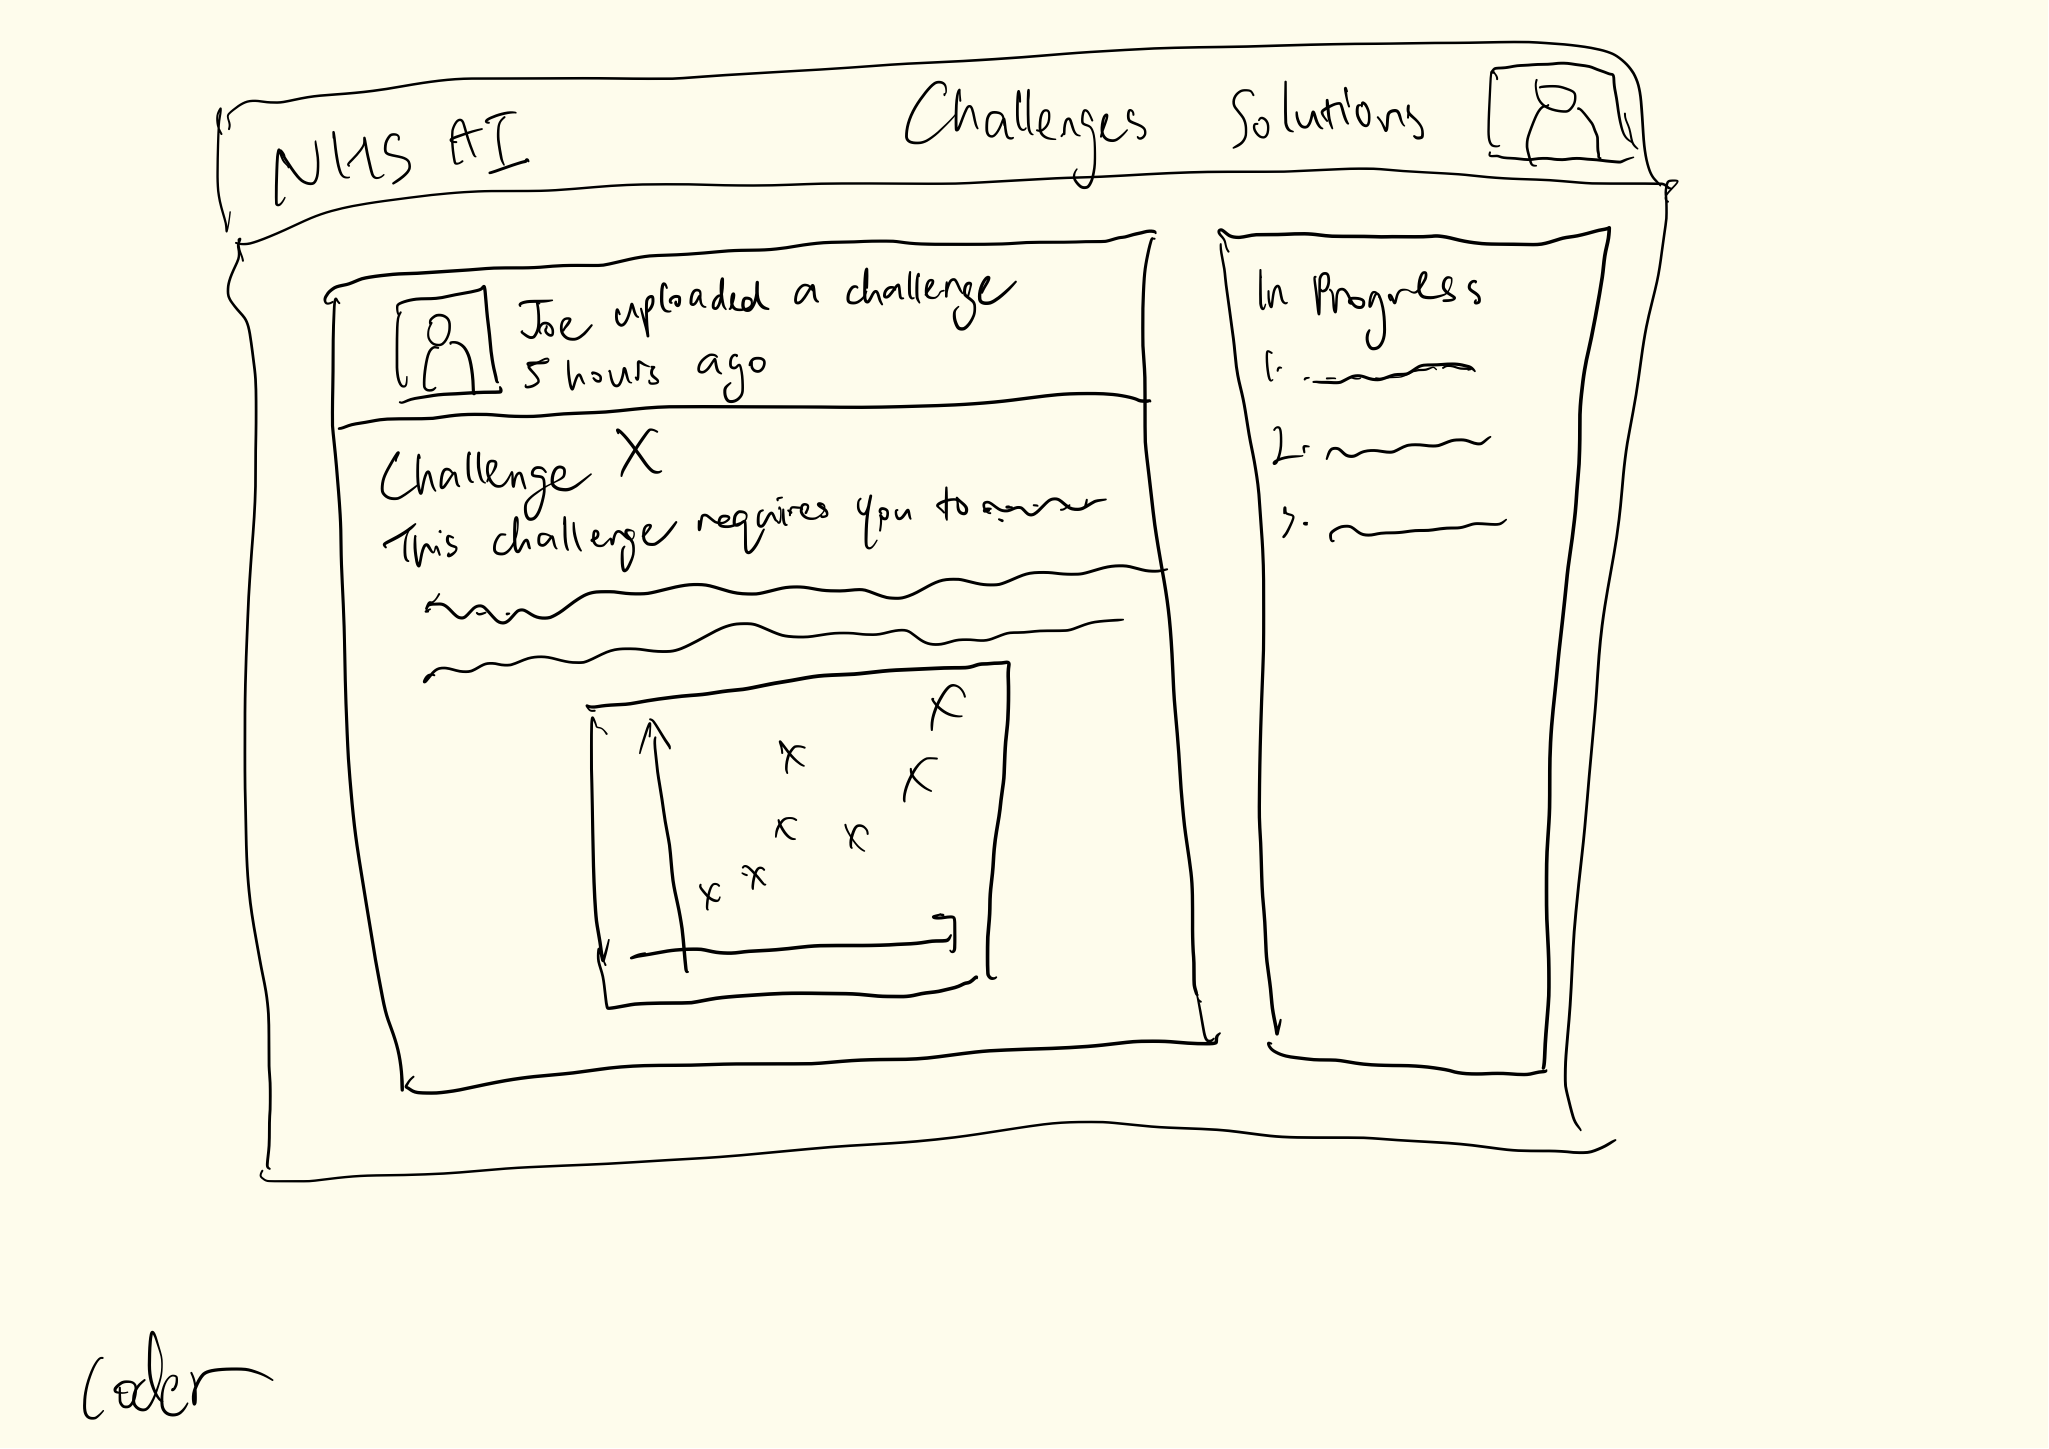 NHS AI Challenges Solutions
Joe uploaded a challenge
5 hours ago
Challenge X
This challenge requires you to
In Progress
1.
2.
3.
Coder